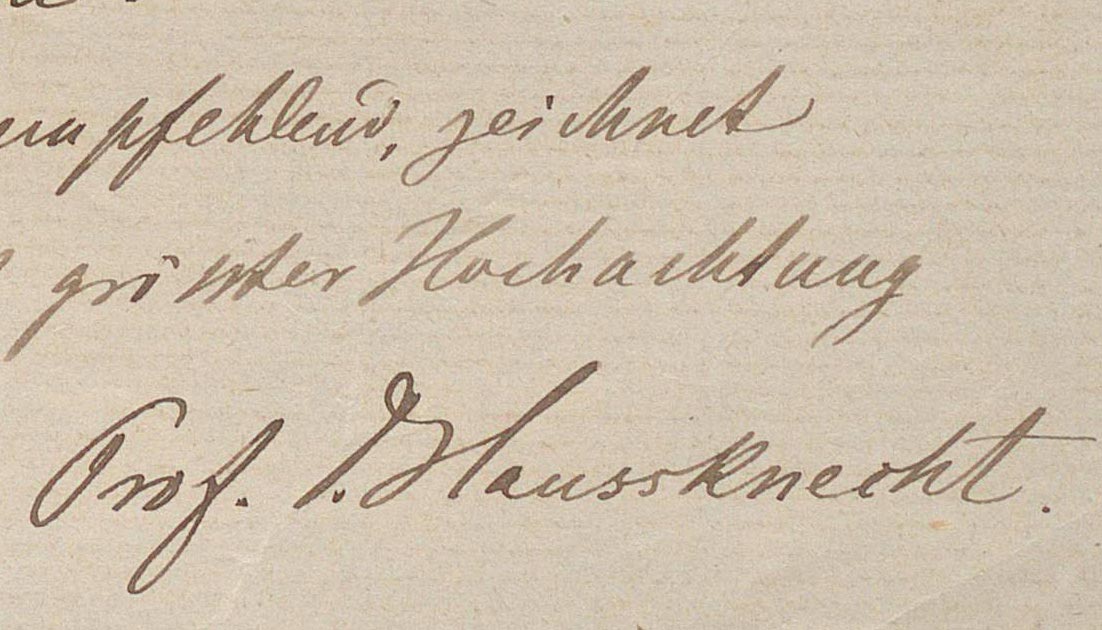 empfehlend, zeichnet
grösster Hochachtung
Prof. Haussknecht.